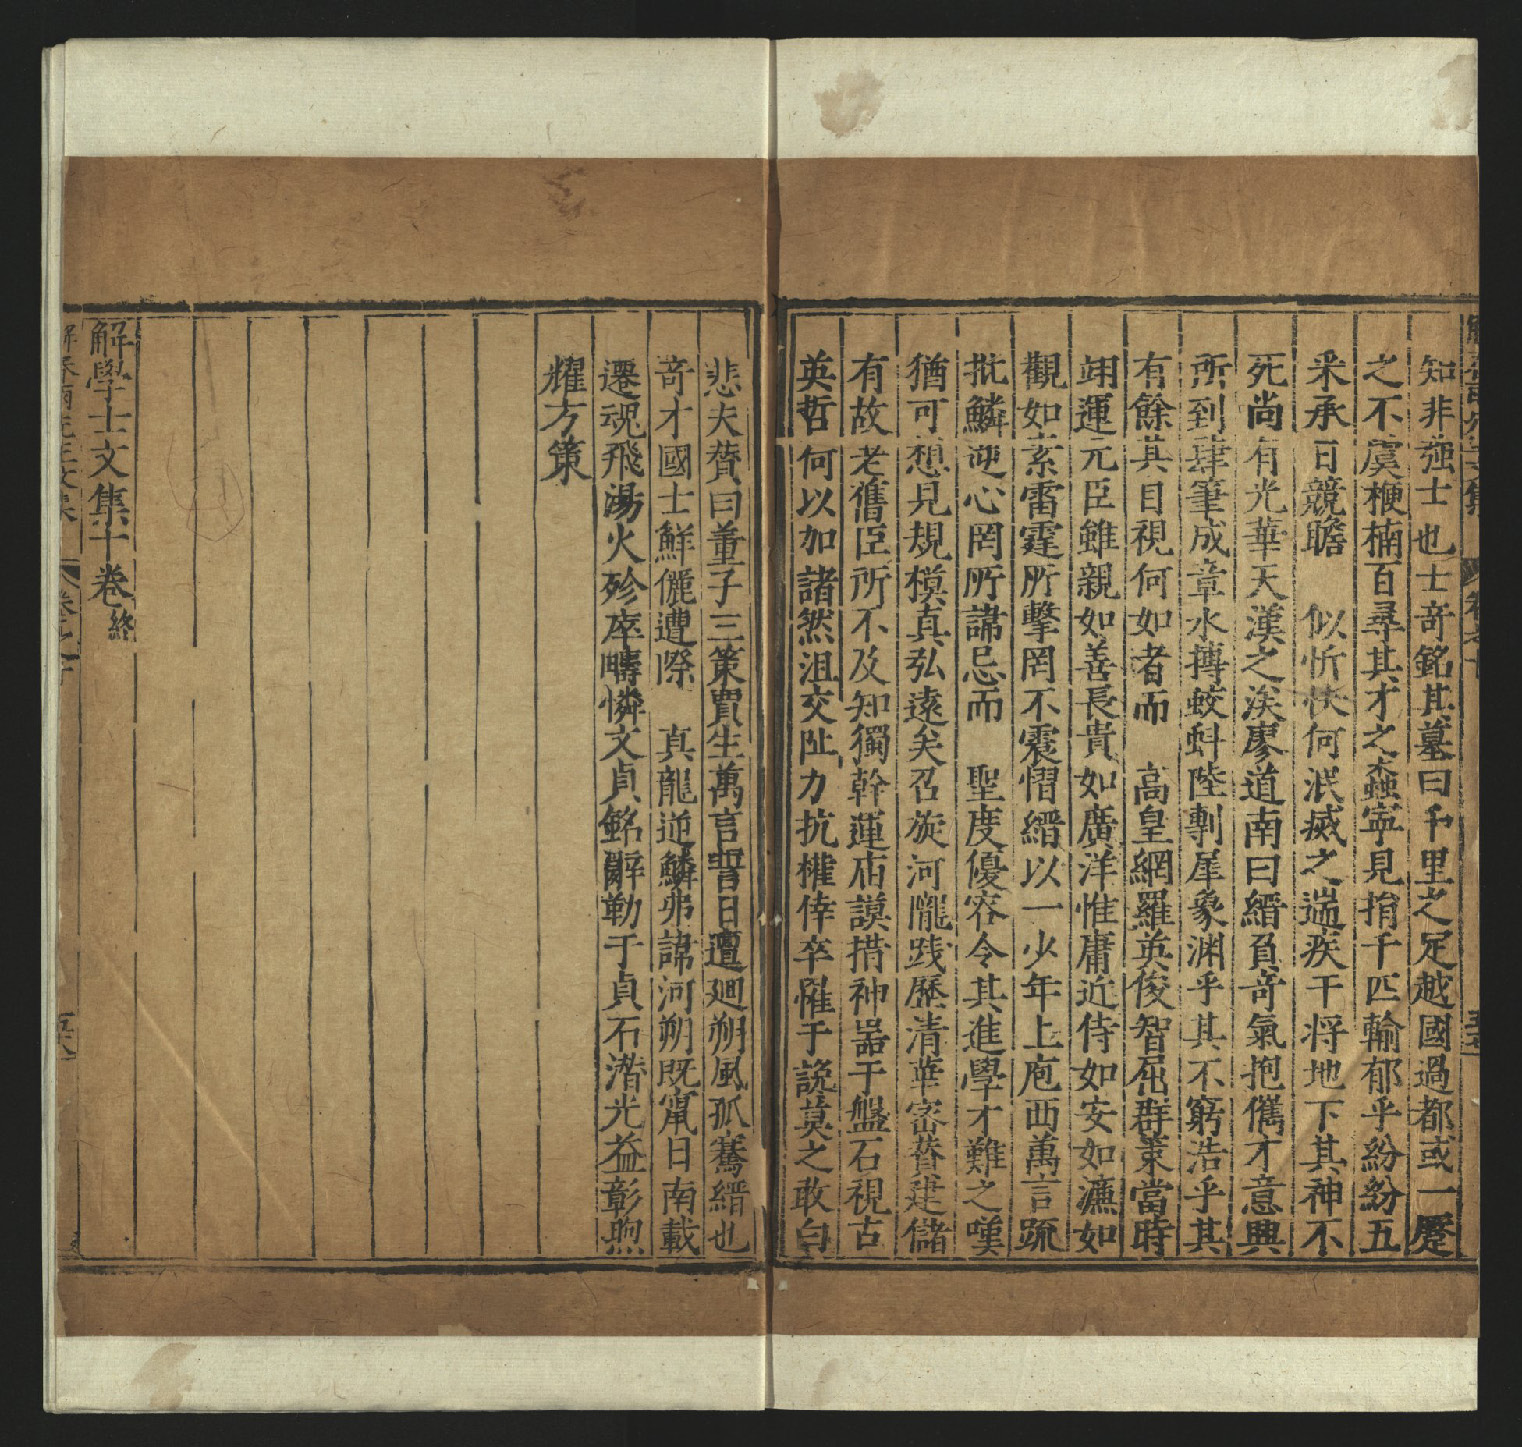 知非強士也士竒銘其墓曰千里之足越國過都或一蹷
之不虞楩楠百尋其才之蟲寜見捐千匹輸郁乎紛紛五
采承日競瞻　似忻快何泯威之遄疾干将地下其神不
死尚有光華天漢之涘廖道南曰縉負竒氣抱儁才意興
所到肆筆成章水搏蛟蚪陸剸犀象渊乎其不窮浩乎其
有餘其目視何如者而　高皇網羅英俊智屈群策當時
翊運元臣雖親如善長貴如廣洋惟庸近侍如安如濂如
觀如素雷霆所擊罔不震慴縉以一少年上庖西萬言䟽
批鱗迎心罔所諱忌而　聖度優容令其進學才難之嘆
猶可想見規模真弘遠矣召旋河隴踐歷清華宻賛建儲
有故老舊臣所不及知獨幹運庙謨措神噐于盤石視古
英哲何以加諸然沮交阯力抗權倖卒罹于讒莫之敢白
悲夫賛曰董子三策賈生萬言誓日遭廻朔風孤騫縉也
竒才國士鮮儷遭際　真龍逆鱗弗諱河朔既竄日南載
遷魂飛湯火殄瘁疇憐文貞銘辭勒于貞石潜光益彰煦
耀方策
解學士文集十卷終